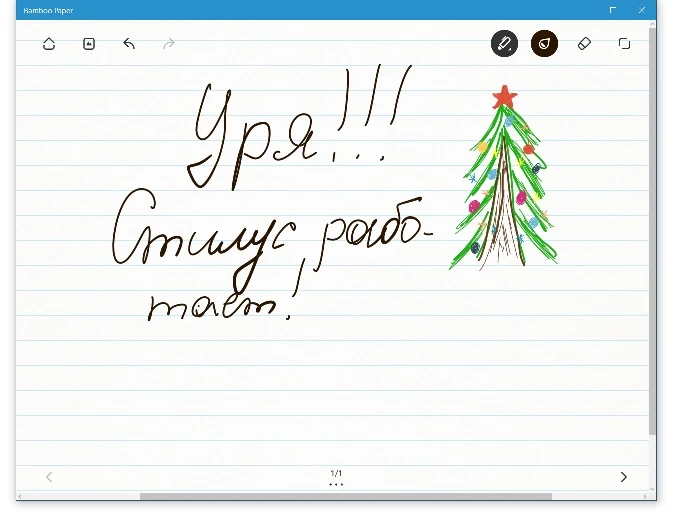 Bamboo Paper
Уря!!!
Стилус рабо-
тает!
1/1